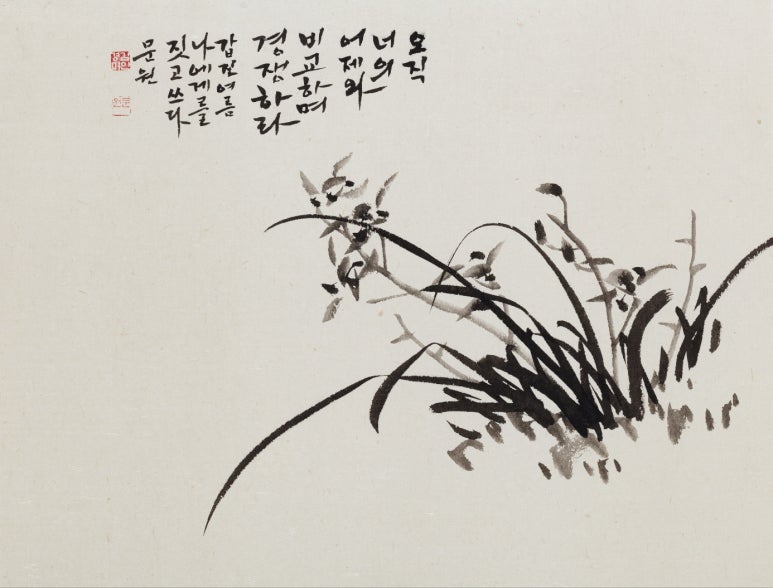 오직
너의
어제와
비교하며
경쟁하라
갑진여름
나에게를
짓고쓰다
문원